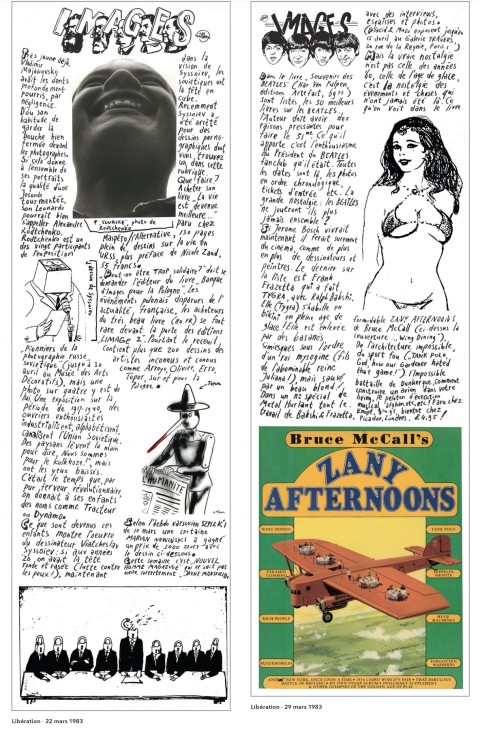 IMAGES
Très jeune déjà,
Vladimir
Majakovsky
avait les dents
profondement
pourris, par
négligence.
D'où son
habitude de
garder la
bouche bien
fermée devant
les photographes.
Si cela donne
à l'ensemble de
ses portraits
la qualité d'une
Joconde
tourmentée,
son Leonardo
pourrait bien
s'appeller Alexandre
Rodtchenko.
Rodtchenko est un
des vingt participants
de l'exposition
Pionniers de la
photographie russe
Soviétique (jusqu'à 30
avril au Musée des Arts
Décoratifs), mais une
photo sur quatre y est de
lui. Une exposition sur la
période de 1917-1940, des
ouvriers enthousiastes
industrialisent, alphabétisent,
canalisent l'Union Soviétique.
Des paysans lèvent la main
pour dire, Nous sommes
pour le Kolkhoze!, mais
ont les yeux baissés.
C'était le temps que, par
pur ferveur révolutionnaire
on donnait à ses enfants
des noms comme Tracteur
ou Dynamo.
Ce que sont devenus ces
enfants montre l'œuvre
du dessinateur Viatcheslav
Syssoiev: si aux années
20, on avait la tête
ronde et rasée (lutte contre
les poux!), maintenant
dans la
vision de
Syssoiev, les
soviétiques ont
la tête en
cube.
Recemment
Syssoiev a
été arrêté
pour des
dessins porno-
graphiques dont
vous trouvez
un dans cette
rubrique.
Que faire?
Acheter son
livre. La vie
est devenue
meilleure...
Paru chez
↑ "SOURIRE", photo de
Rodtchenko
Maspéro/l'Alternative, 130 pages
plein de dessins sur la vie en
URSS, plus préface de Nicole Zand,
55 francs.
Peut-on être trop solidaire? doit se
demander l'éditeur du livre, Banque
d'images pour la Pologne. Les
événements polonais disparues de l'
actualité, française, les acheteurs
du très beau livre (240 ff) se font
rare devant la porte des éditions
LIMAGE 2. Pourtant le receuil,
contient plus que 200 dessins des
artistes inconnues et connus
comme Arroyo, Olivier, Erró,
Topor, sur et pour la
Pologne.
dessin de Syssoiev
L'HUMANITÉ
Selon l'hebdo varsovien SZPILKI
de 10 mars une certaine
MARIAN NOWINSKI a gagné
un prix de 3000 zloty avec
le dessin ci-dessous.
Cette semaine c'est "NOUVEL
HOMME MAGAZINE" qui ne sait pas
écrire correctement, JAVIER MARISCAL
Libération - 22 mars 1983
IMAGES
Dans le livre, Souvenirs des
BEATLES (Har Van Fulpen,
éditions Artefact, 69f) on
sont listés les 50 meilleurs
livres sur les BEATLES.
l'Auteur doit avoir des
raisons pressantes pour
faire le 51me. Ce qu'il
apporte c'est l'enthousiasme
du Président du BEATLES
fanclub qu'il était. Toutes
les dates sont là, les photos
en ordre chronologique,
tickets d'entrée etc. La
grande nostalgie: les BEATLES
ne joutront ils plus
jamais ensemble?
Si Jerome Bosch vivrait
maintenant il ferait surement
du cinéma, comme de plus
en plus de dessinateurs et
peintres. Le dernier sur
la liste est Frank
Frazetta qui a fait
TYGRA, avec Ralph Bakshi.
Elle (Tygra) s'habille en
bikini en pleine age de
glace! Elle est enlevée
par des basanés
simiesques sous l'ordre
d'un roi mysogine (fils
de l'abominable reine
Juliana!), mais sauvé
par un beau blond!
Dans un no spécial de
Metal Hurlant tout le
travail de Bakshi & Frazetta,
avec des interviews,
esquisses et photos.
(Placid & Muzo exposent jusqu'au
15 avril au Galerie TRANCHES,
rue de la Reynie, Paris 1er)
Mais la vraie nostalgie
n'est pas celle des années
60, celle de l'age de glace,
c'est la nostalgie des
evenements et choses qui
n'ont jamais été là. Ce
qu'on voit dans le livre
formidable ZANY AFTERNOONS
de Bruce McCall (ci dessus la
couverture "Wing Dining").
De l'architecture impossible,
du sport fou (TANK POLO,
God, how our Gardener hated
that game!) l'impossible
bataille de Dunkerque, comment
construire un avion dans votre
living, le peloton d'execution
musical "sightmeet", etc! Paru chez
Knopf, $14.95, bientot chez
Picador, Londres, £4.95!
Bruce McCall's
ZANY
AFTERNOONS
WING DINING
TANK POLO
PYRAMID
CLIMBING
ZEPPELIN
SHOOTS
RICH PEOPLE
BLUE
MACHINES
SUPERWORLDS
FORGOTTEN
HARBORS
AND NEW YORK, ONCE UPON A TIME • 1936 CAIRO WORLD'S FAIR • THAT FABULOUS
BATTLE OF BRITAIN • MY OWN STAMP ALBUM • SWILLMART SUPPLEMENT
& OTHER GLIMPSES OF THE GOLDEN AGE OF PLAY
Libération - 29 mars 1983